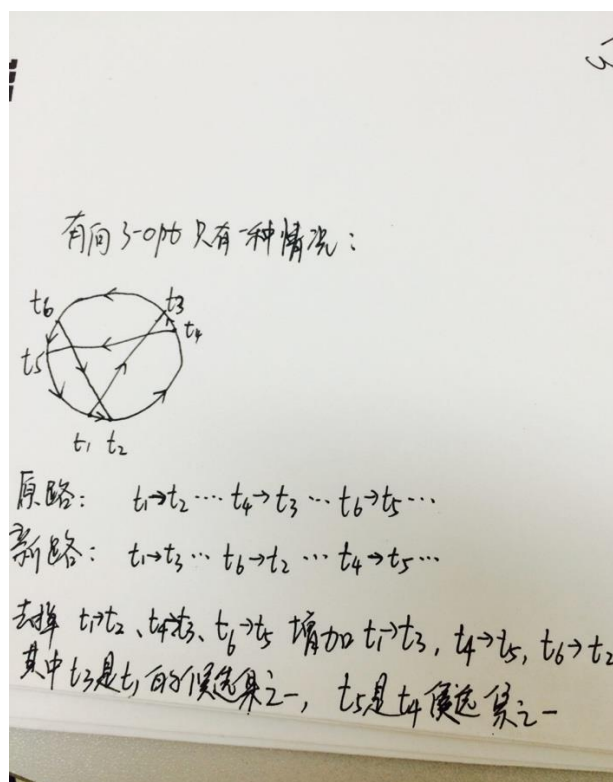 有向3-opt只有一种情况：
t6
t3
t4
t5
t1 t2
原路： t1→t2 ···· t4→t3 ··· t6→t5 ···
新路： t1→t3 ··· t6→t2 ··· t4→t5 ···
去掉 t1→t2、t4→t3、t6→t5 增加 t1→t3, t4→t5, t6→t2
其中t3是t1的候选集之一, t5是t4候选集之一